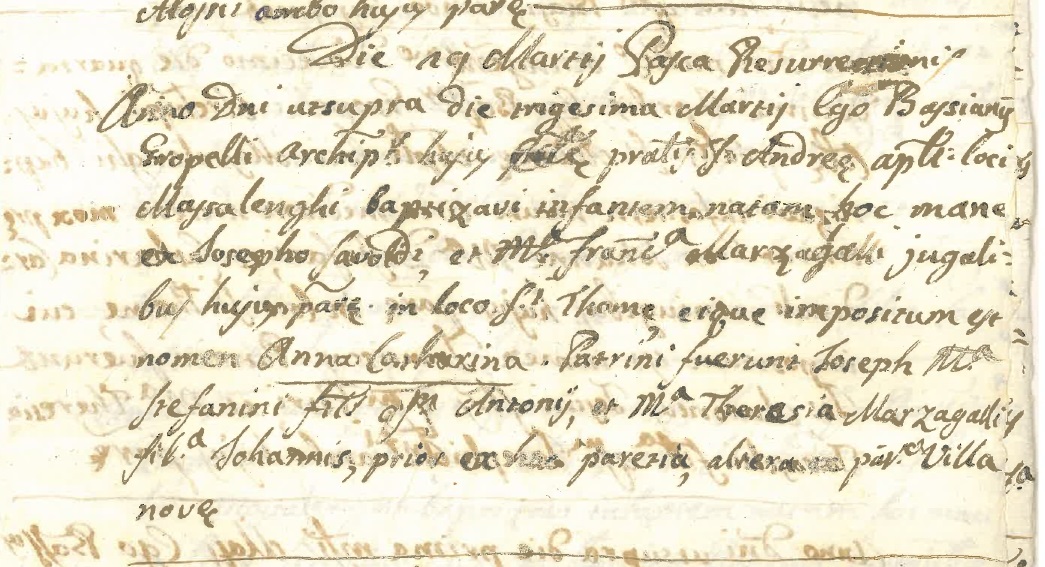 Aloysii ambo hujus parę
Die 29 Martij Pasca Resurrectionis
Anno Dni utsupra die trigesima Martij Ego Bassianus
Gropelli archiprb hujus pratis S. Andreę apli loci
Massalenghi baptizavi infantem natam hoc mane
ex Josepho savoldi, et Ma Franca Marzagalli jugali=
bus hujus parę in loco S.ti Thomę, eique impositum est
nomen Anna Catharina. Patrini fuerunt Joseph
stefanini fils qm Antonij, et Ma Theresia Marzagalli
fil.a Johannis, prior ex hac paretia, altera ex par.a Villa
novę